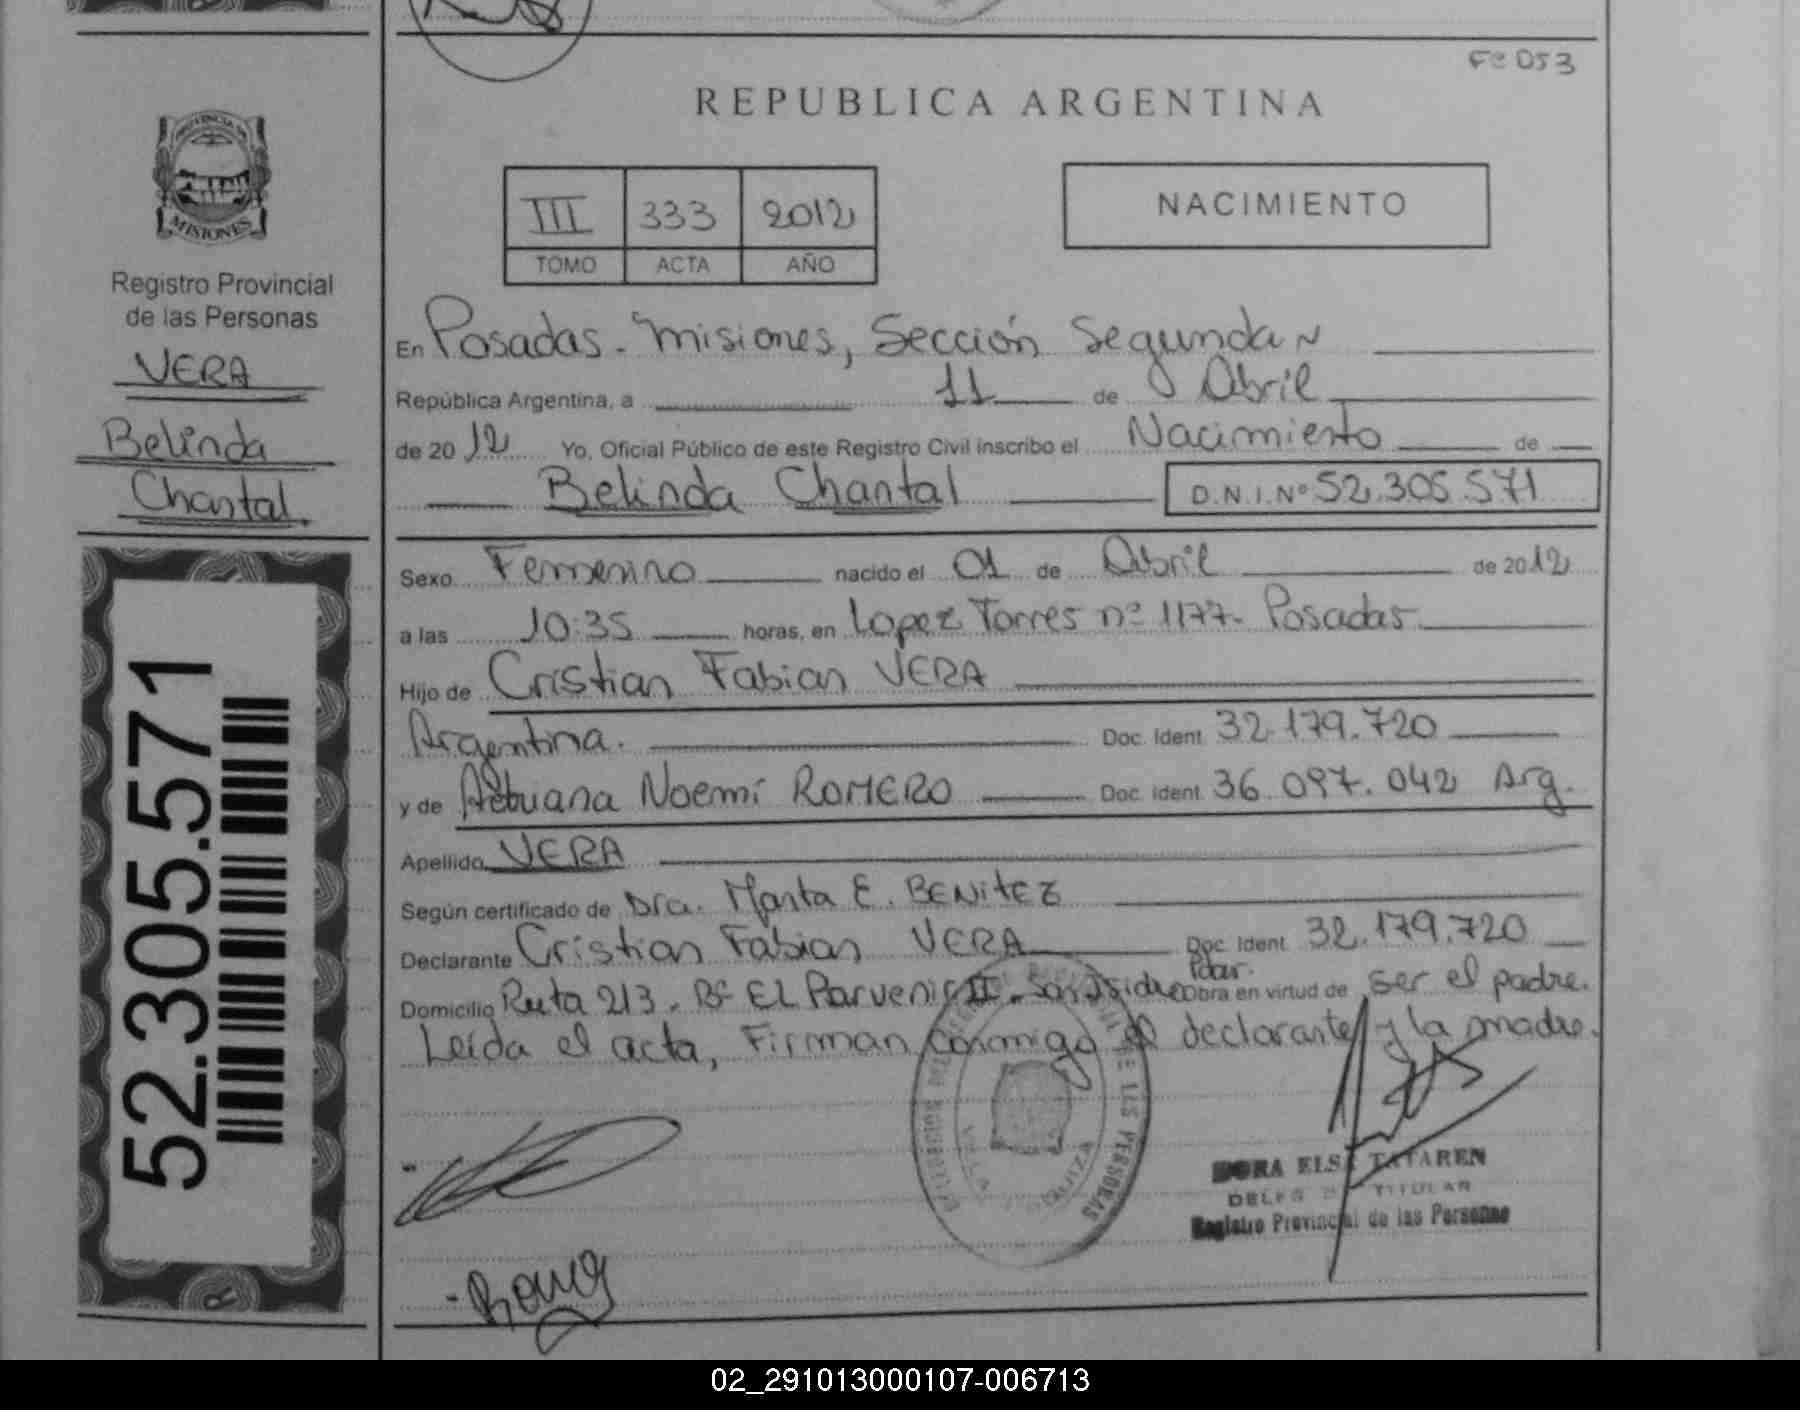 Fº 053
REPUBLICA ARGENTINA
PROVINCIA DE
MISIONES
Registro Provincial
de las Personas
VERA
Belinda
Chantal
52.305.571
III 333 2012
TOMO ACTA AÑO
NACIMIENTO
En Posadas - Misiones, Sección Segunda
República Argentina, a 11 de Abril
de 2012 Yo, Oficial Público de este Registro Civil inscribo el Nacimiento de
Belinda Chantal D.N.I.Nº 52.305.571
Sexo Femenino nacido el 01 de Abril de 2012
a las 10:35 horas, en Lopez Torres nº 1177- Posadas
Hijo de Cristian Fabian VERA
Argentina. Doc. Ident. 32.179.720
y de Noemí ROMERO Doc. Ident. 36.097.042 Arg.
Apellido VERA
Según certificado de Dra. Marta E. BENITEZ
Declarante Cristian Fabian VERA Doc. Ident. 32.179.720
Domicilio Ruta 213 - Bº EL Porvenir II - San Isidro Pdas. Obra en virtud de ser el padre.
Leída el acta, Firman conmigo el declarante y la madre.
DE LAS PERSONAS
DORA ELSA TATAREN
DELEGADA TITULAR
Registro Provincial de las Personas
02_291013000107-006713